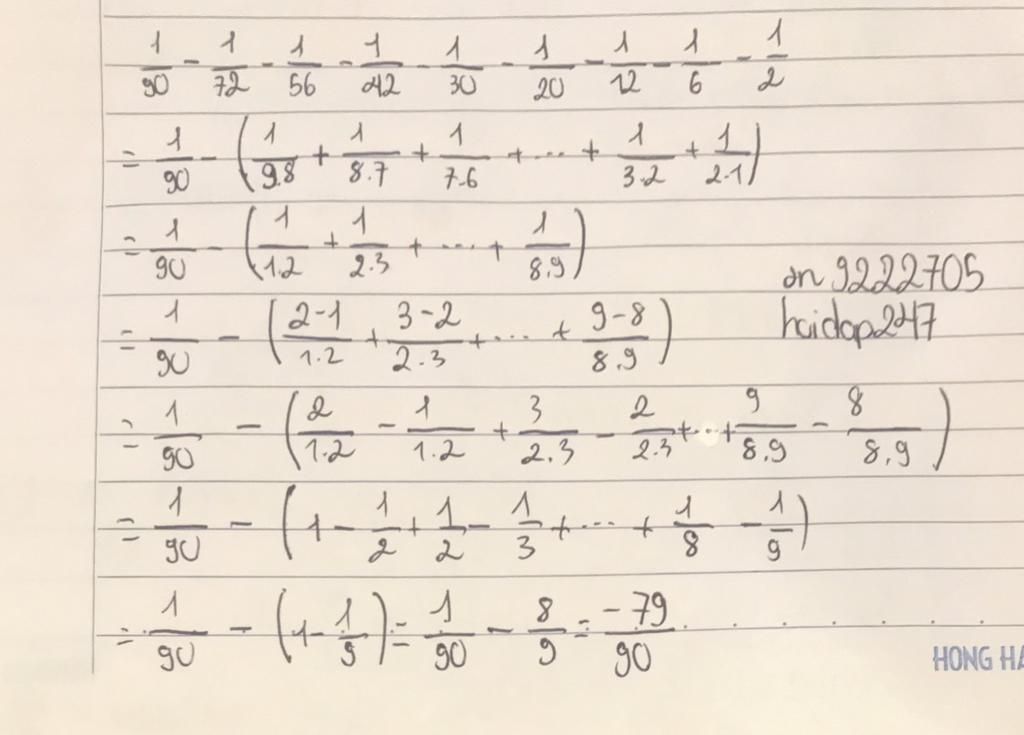 1/90 - 1/72 - 1/56 - 1/42 - 1/30 - 1/20 - 1/12 - 1/6 - 1/2
= 1/90 - (1/9.8 + 1/8.7 + 1/7.6 + ... + 1/3.2 + 1/2.1)
= 1/90 - (1/1.2 + 1/2.3 + ... + 1/8.9)
on 9222705
= 1/90 - (2-1/1.2 + 3-2/2.3 + ... + 9-8/8.9)
hoidap247
= 1/90 - (2/1.2 - 1/1.2 + 3/2.3 - 2/2.3 + ... + 9/8.9 - 8/8.9)
= 1/90 - (1 - 1/2 + 1/2 - 1/3 + ... + 1/8 - 1/9)
= 1/90 - (1 - 1/9) = 1/90 - 8/9 = -79/90
HONG HA